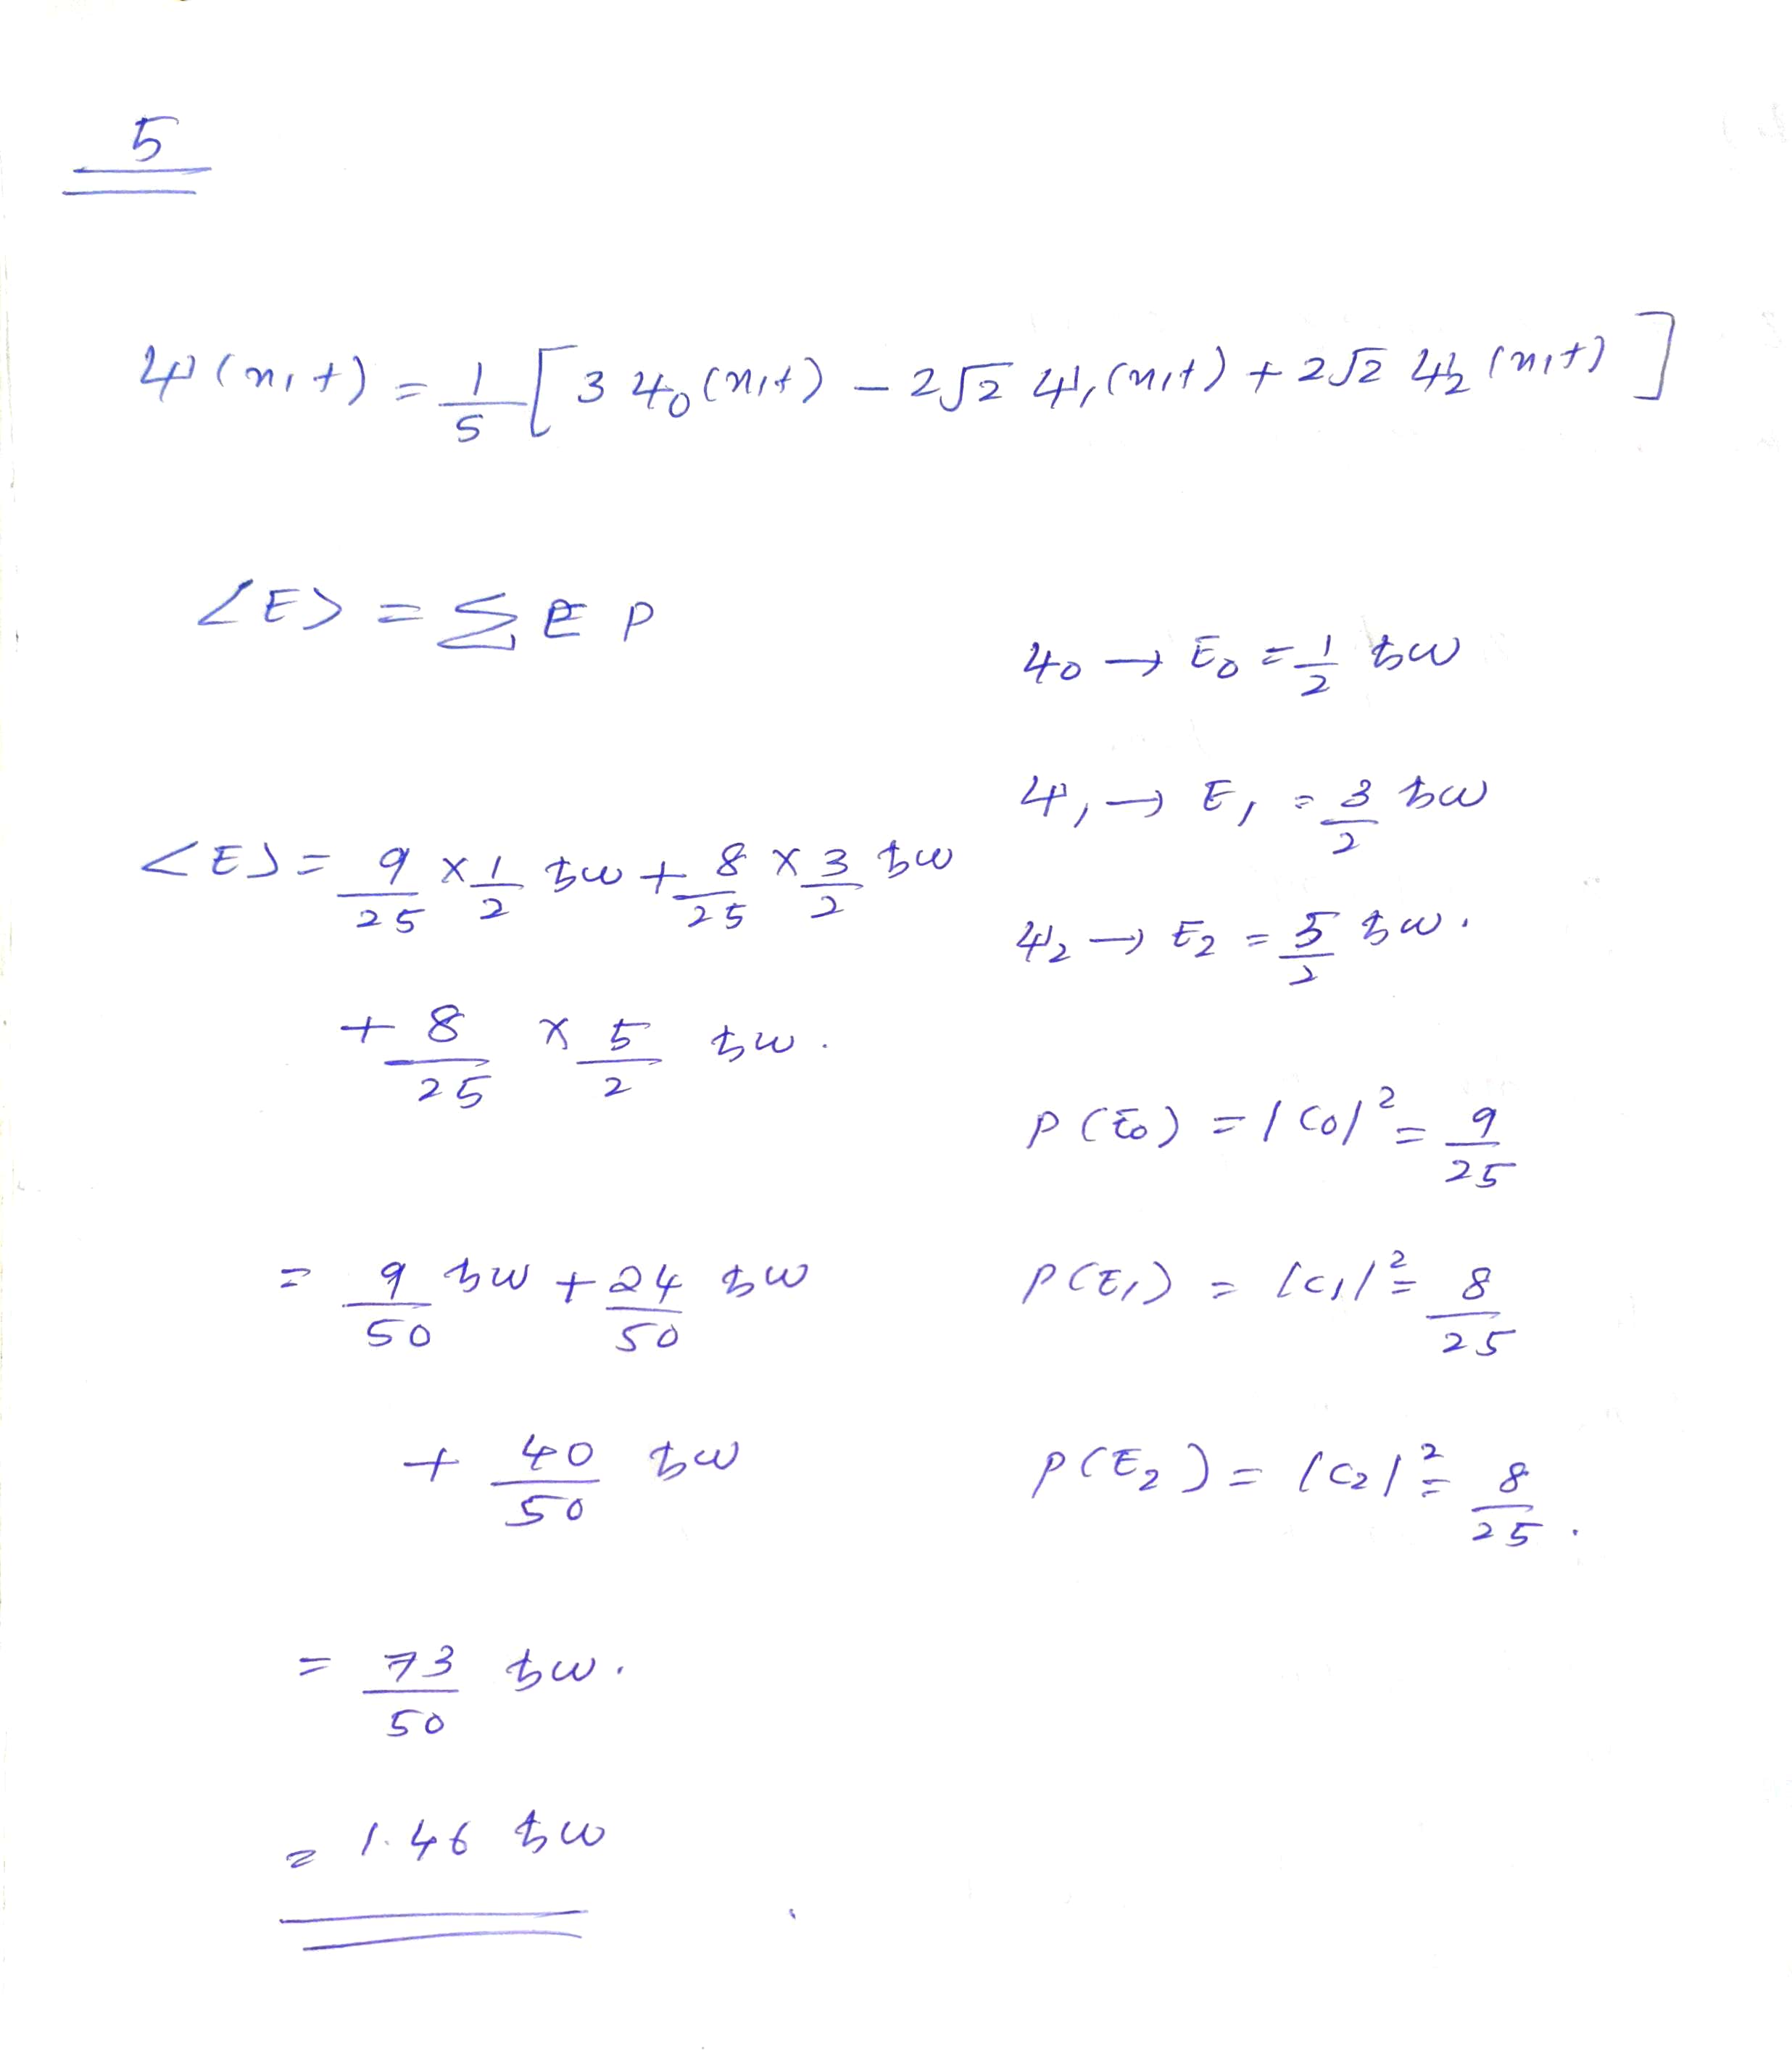 5
ψ(x,t) = 1/5 [ 3 ψ0(x,t) – 2√2 ψ1(x,t) + 2√2 ψ2(x,t) ]
<E> = Σ E P
ψ0 → E0 = 1/2 ħω
ψ1 → E1 = 3/2 ħω
<E> = 9/25 × 1/2 ħω + 8/25 × 3/2 ħω
ψ2 → E2 = 5/2 ħω.
+ 8/25 × 5/2 ħω.
P(E0) = |C0|² = 9/25
= 9/50 ħω + 24/50 ħω
P(E1) = |C1|² = 8/25
+ 40/50 ħω
P(E2) = |C2|² = 8/25.
= 73/50 ħω.
= 1.46 ħω